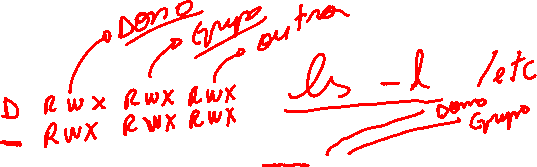 Dono
Grupo
outros
D RWX RWX RWX
- RWX RWX RWX
ls -l /etc
Dono
Grupo